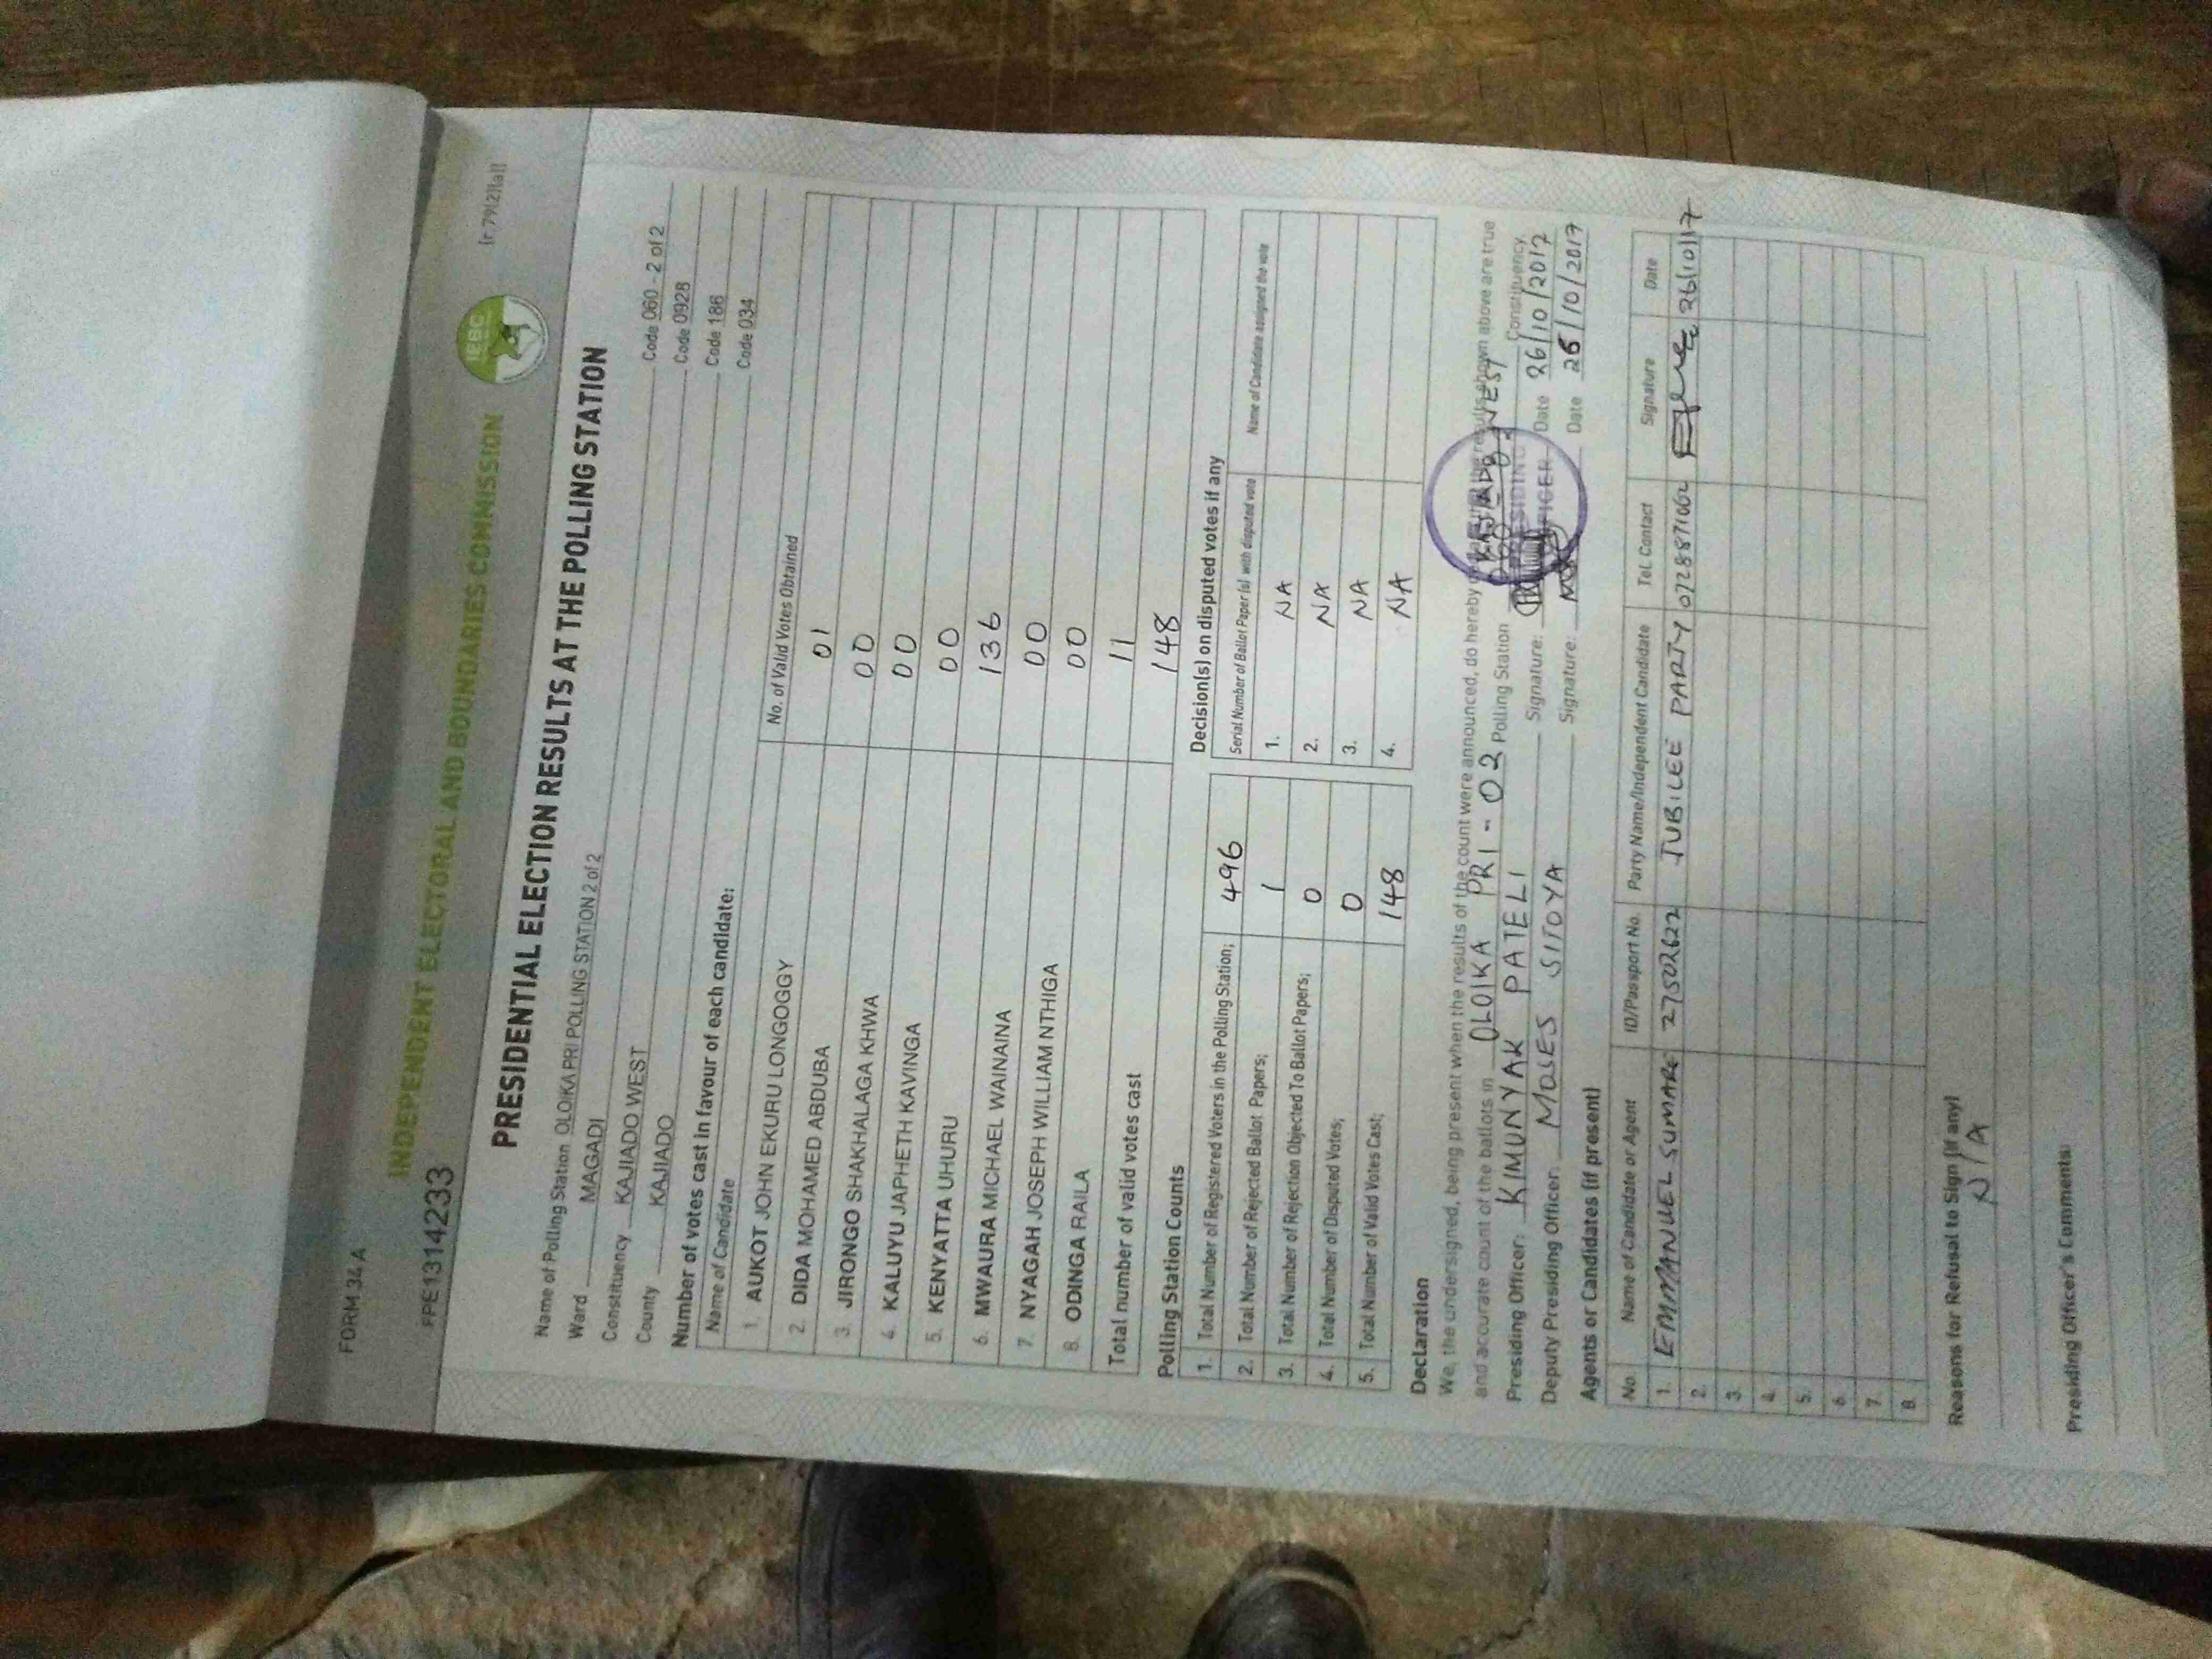 FORM 34 A
INDEPENDENT ELECTORAL AND BOUNDARIES COMMISSION
IEBC
(r.79(2)(a))
PPE1314233
PRESIDENTIAL ELECTION RESULTS AT THE POLLING STATION
Name of Polling Station OLOIKA PRI POLLING STATION 2 of 2 Code 060 - 2 of 2
Ward MAGADI Code 0928
Constituency KAJIADO WEST Code 186
County KAJIADO Code 034
Number of votes cast in favour of each candidate:
Name of Candidate No. of Valid Votes Obtained
1. AUKOT JOHN EKURU LONGOGGY 01
2. DIDA MOHAMED ABDUBA 00
3. JIRONGO SHAKHALAGA KHWA 00
4. KALUYU JAPHETH KAVINGA 00
5. KENYATTA UHURU 136
6. MWAURA MICHAEL WAINAINA 00
7. NYAGAH JOSEPH WILLIAM NTHIGA 00
8. ODINGA RAILA 11
Total number of valid votes cast 148
Polling Station Counts
1. Total Number of Registered Voters in the Polling Station; 496
2. Total Number of Rejected Ballot Papers; 1
3. Total Number of Rejection Objected To Ballot Papers; 0
4. Total Number of Disputed Votes; 0
5. Total Number of Valid Votes Cast; 148
Decision(s) on disputed votes if any
Serial Number of Ballot Paper (s) with disputed vote Name of Candidate assigned the vote
1. NA
2. NA
3. NA
4. NA
Declaration
We, the undersigned, being present when the results of the count were announced, do hereby the results shown above are true
and accurate count of the ballots in OLOIKA PRI - 02 Polling Station WEST Constituency.
Presiding Officer: KIMUNYAK PATELI Signature: Date 26/10/2017
Deputy Presiding Officer: MOSES SITOYA Signature: Date 26/10/2017
PRESIDING
OFFICER
Agents or Candidates (if present)
No. Name of Candidate or Agent ID/Passport No. Party Name/Independent Candidate Tel. Contact Signature Date
1. EMMANUEL SUMARE 27502622 JUBILEE PARTY 0728871002 26/10/17
2.
3.
4.
5.
6.
7.
8.
Reasons for Refusal to Sign (if any)
N/A
Presiding Officer's Comments: